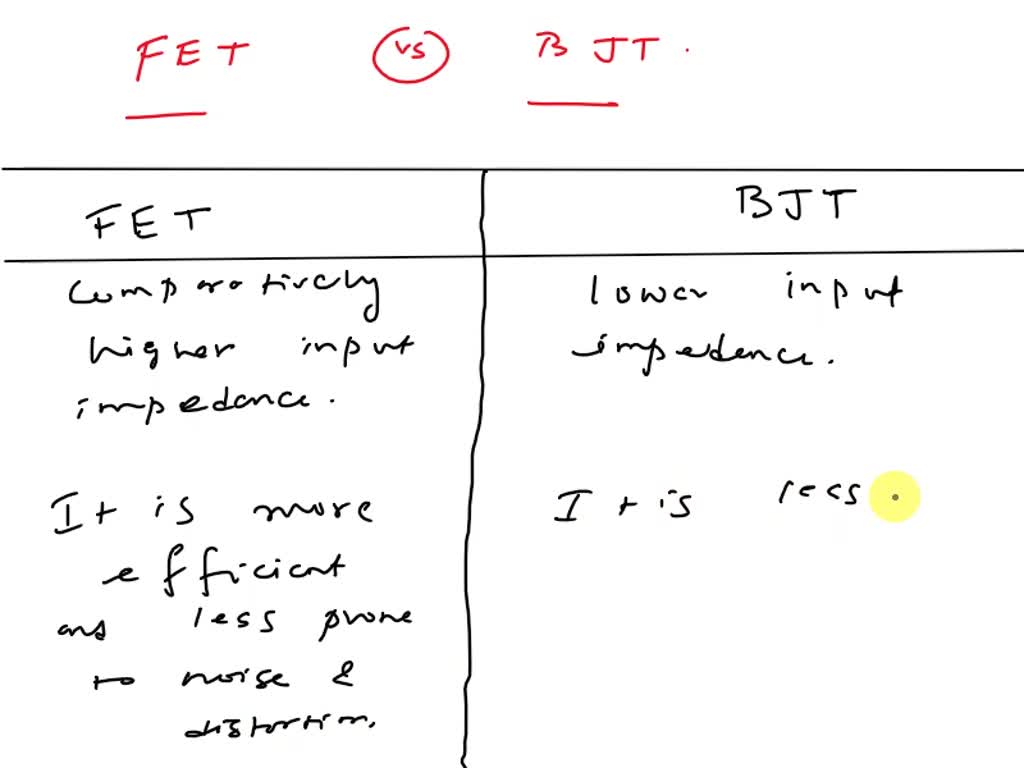 FET vs BJT.
FET BJT
comparatively
higher input
impedance.
lower input
impedence.
It is more
efficient
and less prone
to noise &
distortion.
It is less